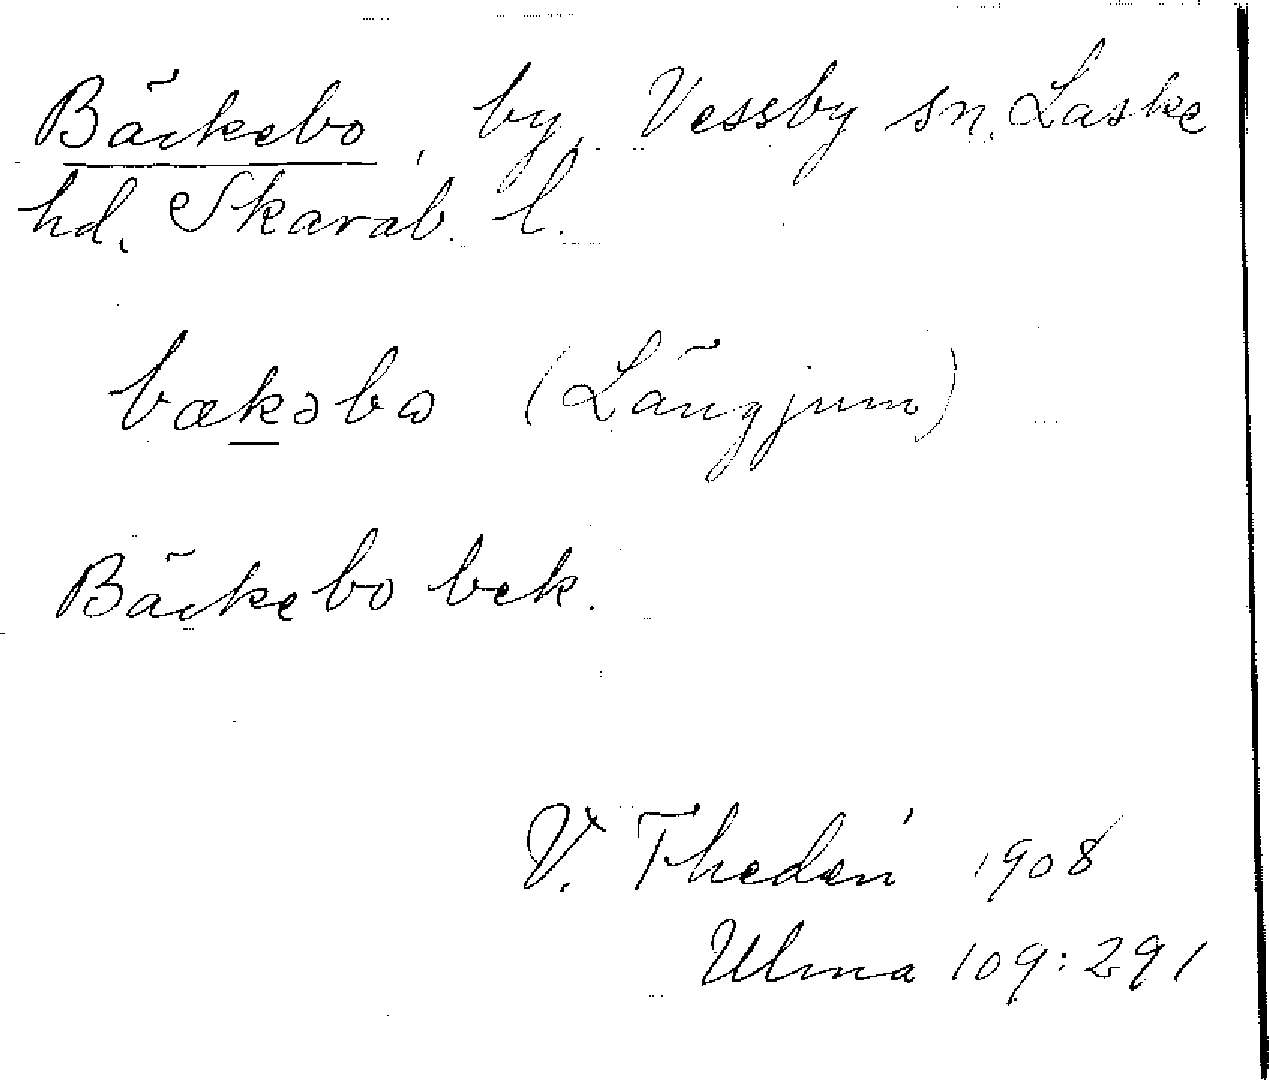 Bäckebo, by, Vessby sn, Laske
hd, Skarab. l.
bækəbɷ (Längjum)
Bäckebo bek.
V. Thedén 1908
Ulma 109:291